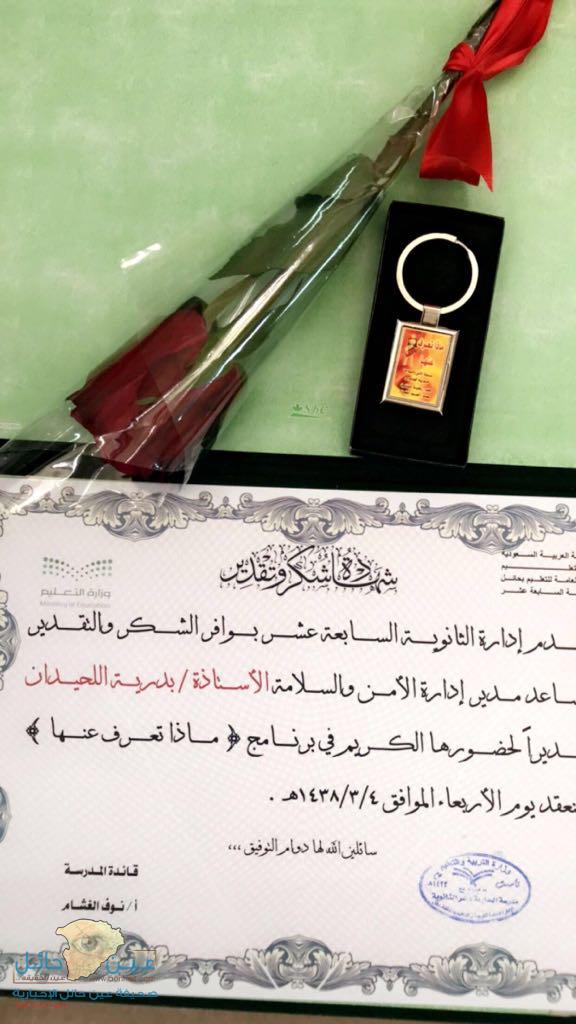 ماذا تعرف
عنها
NbC
شهادة شكر وتقدير
العربية السعودية
وزارة التعليم
Ministry of Education
العامة للتعليم بحائل
السابعة عشر
دم إدارة الثانوية السابعة عشر بوافر الشكر والتقدير
ساعد مدير إدارة الأمن والسلامة الأستاذة / بدرية اللحيدان
ديراً لحضورها الكريم في برنامج ﴿ ماذا تعرف عنها ﴾
نعقد يوم الأربعاء الموافق ١٤٣٨/٣/٤هـ .
سائلين الله لها دوام التوفيق ،،،
قائدة المدرسة
أ / نوف الغشام
وزارة التربية والتعليم
عين حائل
صحيفة عين حائل الإخبارية